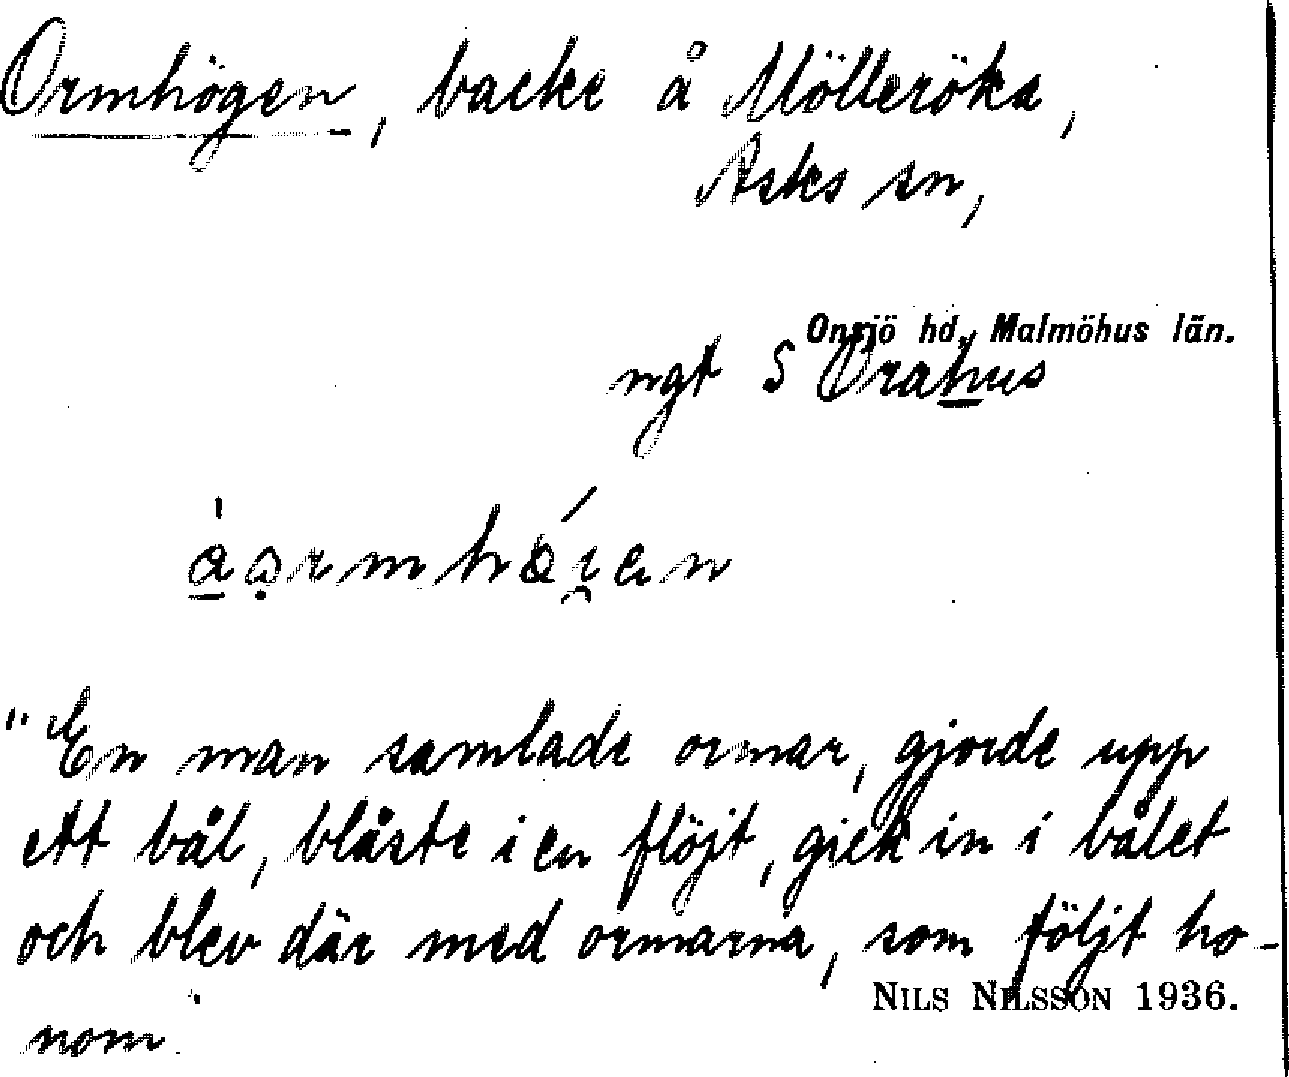 Ormhögen, backe å Mölleröka,
Asks sn,
Onsjö hd, Malmöhus län.
ngt S Orahus
"En man samlade ormar, gjorde upp
ett bål, blåste i en flöjt, gick in i bålet
och blev där med ormarna, som följt ho-
nom"
NILS NILSSON 1936.